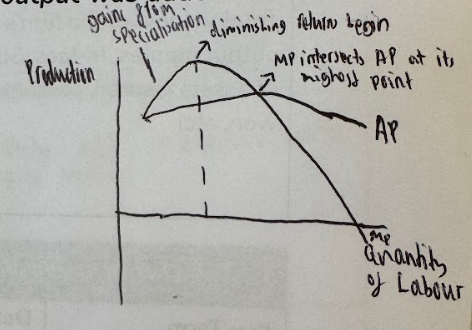 output was
gains from
specialisation
diminishing return begin
Production
MP intersects AP at its
highest point
AP
MP
Quantity
of Labour